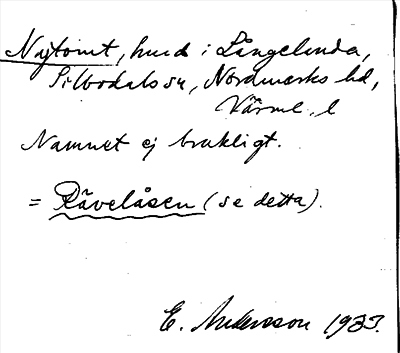 Nytomt, hmd i Långelanda,
Silbodals sn, Nordmarks hd,
Värml. l
Namnet ej brukligt.
= Rävelåsen (se detta).
E. Andersson 1933.